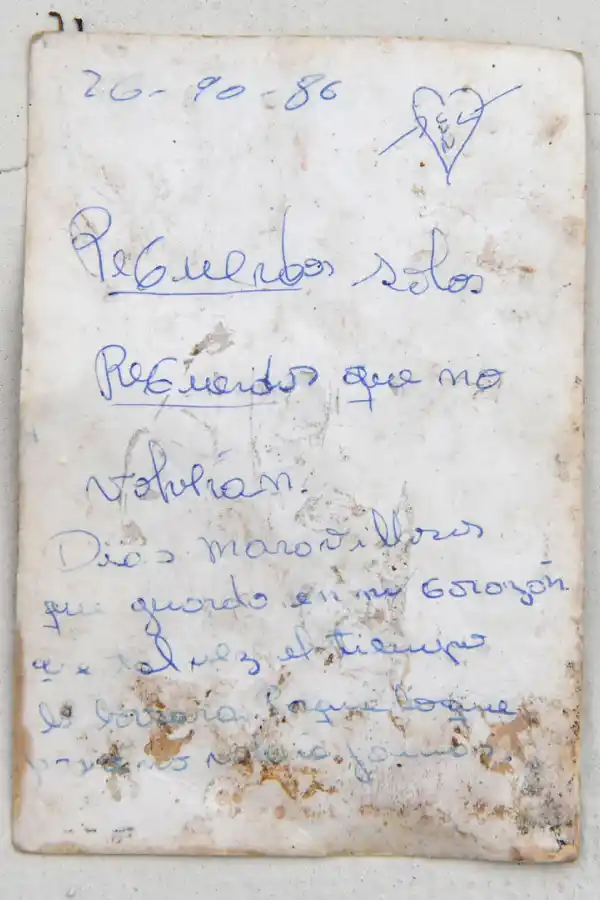 26-10-86
Recuerdos solos
Recuerdos que no
volverán.
Días maravillosos
que guardo en mi corazón
que tal vez el tiempo
lo borrara Porque Loque
no jamas